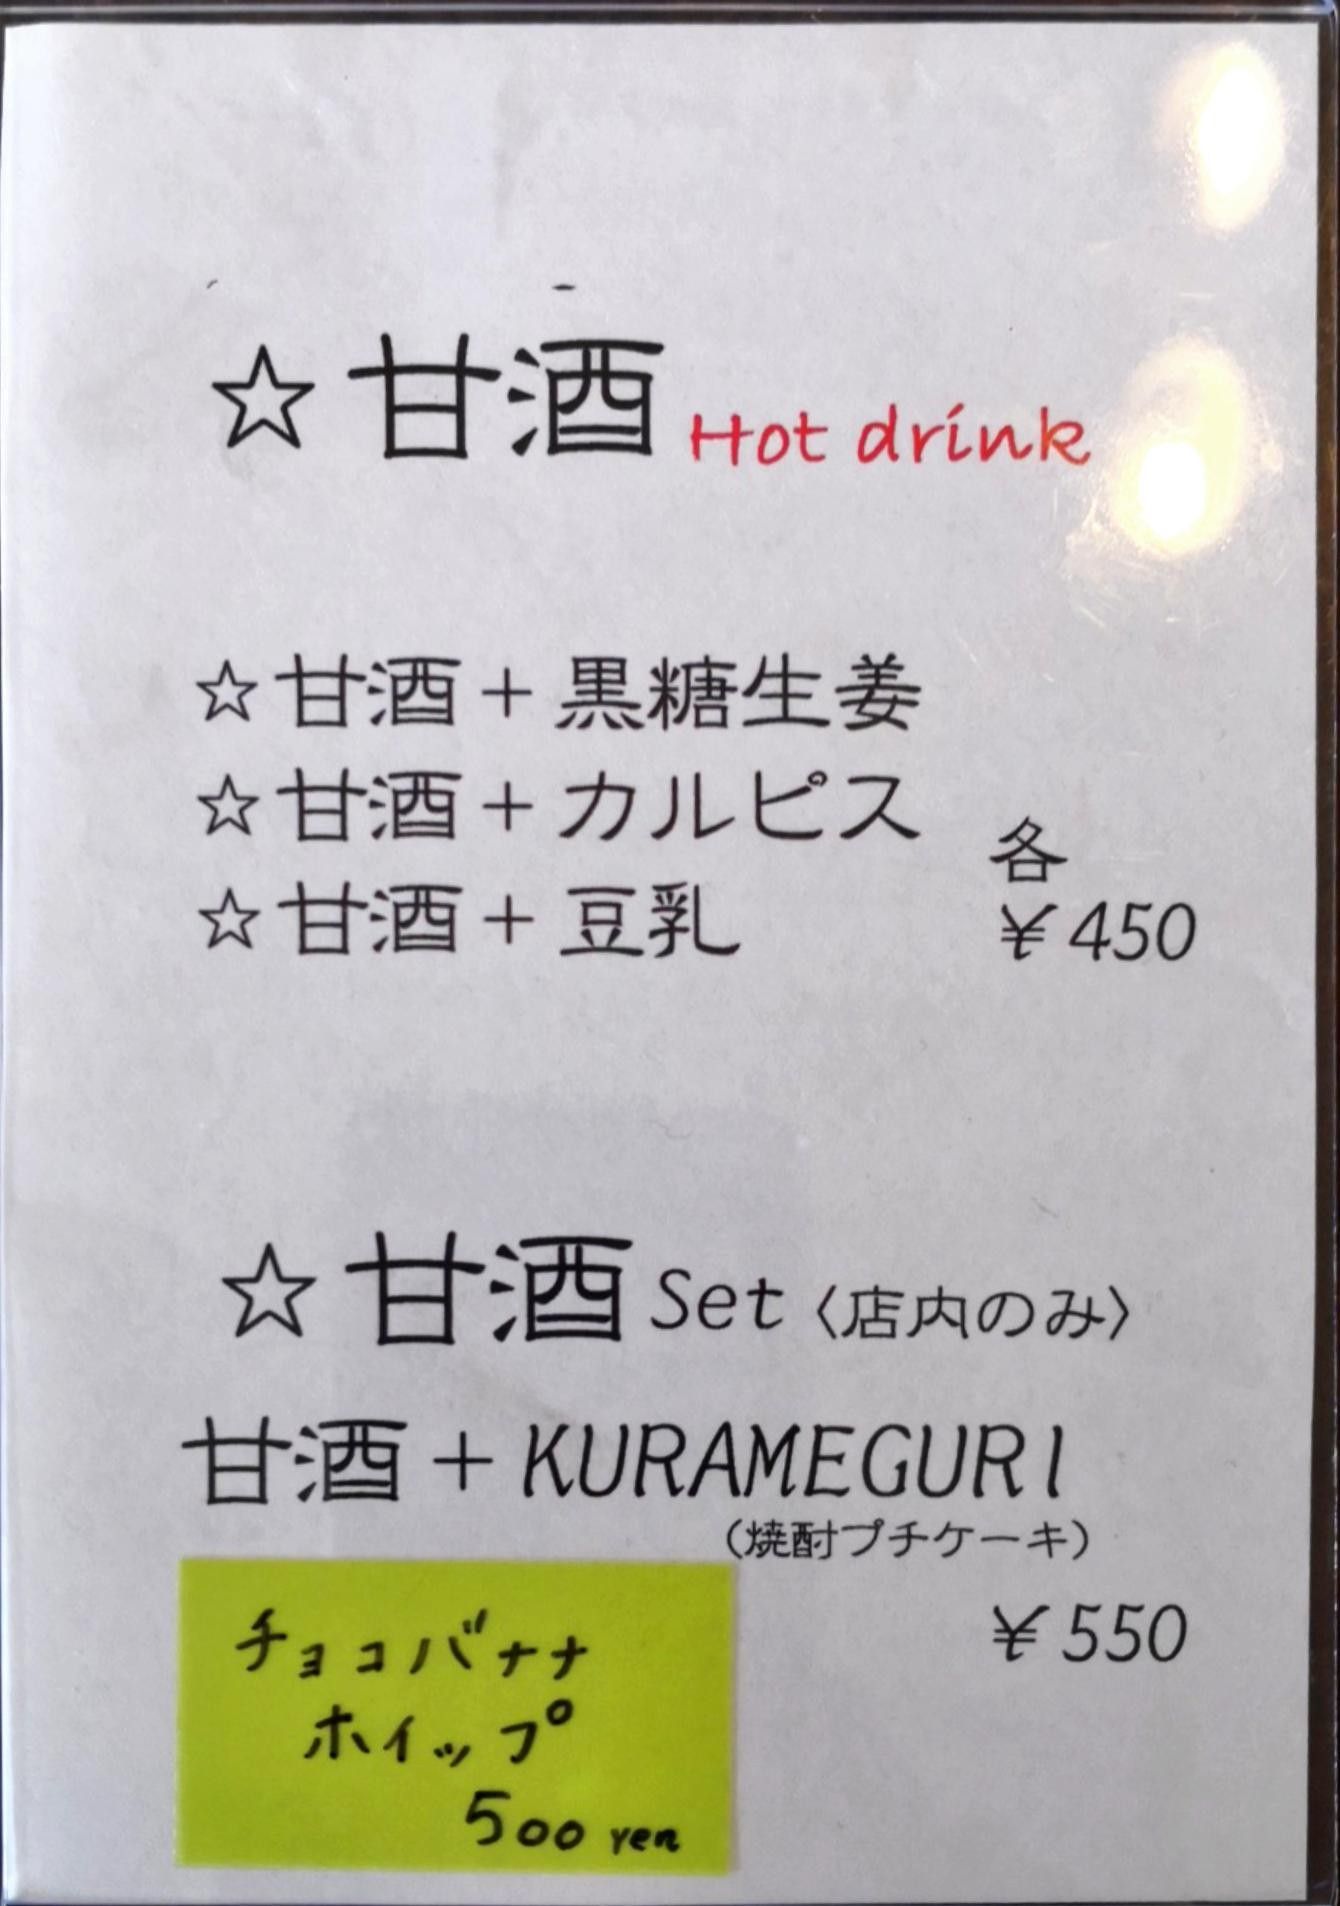 ☆甘酒 Hot drink
☆甘酒＋黒糖生姜
☆甘酒＋カルピス
各
☆甘酒＋豆乳
￥450
☆甘酒 Set〈店内のみ〉
甘酒＋KURAMEGURI
（焼酎プチケーキ）
￥550
チョコバナナ
ホイップ
500 yen